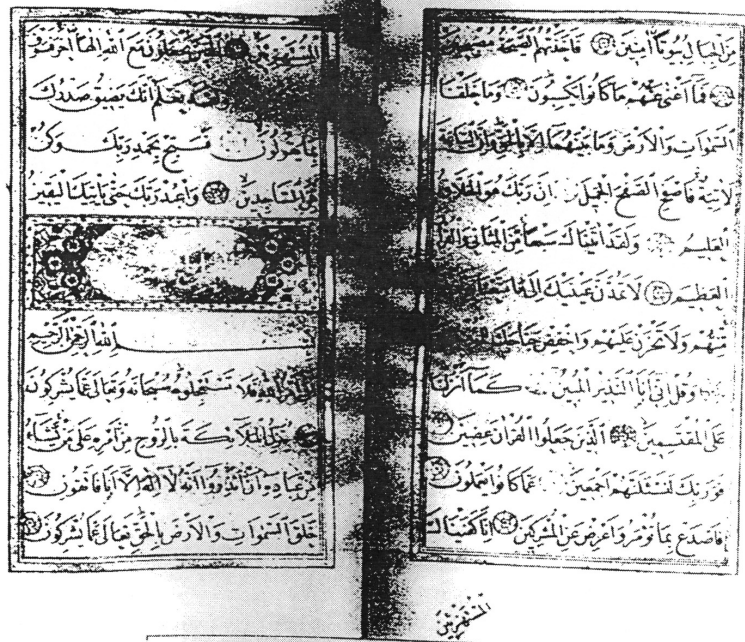 مِنَ الْجِبَالِ بُيُوتًا اٰمِنِينَ فَاَخَذَتْهُمُ الصَّيْحَةُ مُصْبِحِينَ
فَمَا اَغْنٰى عَنْهُمْ مَا كَانُوا يَكْسِبُونَ وَمَا خَلَقْنَا
السَّمٰوَاتِ وَالْاَرْضَ وَمَا بَيْنَهُمَا اِلَّا بِالْحَقِّ وَاِنَّ السَّاعَةَ
لَاٰتِيَةٌ فَاصْفَحِ الصَّفْحَ الْجَمِيلَ اِنَّ رَبَّكَ هُوَ الْخَلَّاقُ
الْعَلِيمُ وَلَقَدْ اٰتَيْنَاكَ سَبْعًا مِنَ الْمَثَانِي وَالْقُرْاٰنَ
الْعَظِيمَ لَا تَمُدَّنَّ عَيْنَيْكَ اِلٰى مَا مَتَّعْنَا
مِنْهُمْ وَلَا تَحْزَنْ عَلَيْهِمْ وَاخْفِضْ جَنَاحَكَ
وَقُلْ اِنِّي اَنَا النَّذِيرُ الْمُبِينُ كَمَا اَنْزَلْنَا
عَلَى الْمُقْتَسِمِينَ اَلَّذِينَ جَعَلُوا الْقُرْاٰنَ عِضِينَ
فَوَرَبِّكَ لَنَسْئَلَنَّهُمْ اَجْمَعِينَ عَمَّا كَانُوا يَعْمَلُونَ
فَاصْدَعْ بِمَا تُؤْمَرُ وَاَعْرِضْ عَنِ الْمُشْرِكِينَ اِنَّا كَفَيْنَاكَ
الْمُسْتَهْزِئِينَ
الْمُسْتَهْزِئِينَ اَلَّذِينَ يَجْعَلُونَ مَعَ اللّٰهِ اِلٰهًا اٰخَرَ فَسَوْفَ
نَعْلَمُ اَنَّكَ يَضِيقُ صَدْرُكَ
بِمَا يَقُولُونَ فَسَبِّحْ بِحَمْدِ رَبِّكَ وَكُنْ
مِنَ السَّاجِدِينَ وَاعْبُدْ رَبَّكَ حَتّٰى يَاْتِيَكَ الْيَقِينُ
اللّٰهِ الرَّحْمٰنِ الرَّحِيمِ
اَمْرُ اللّٰهِ فَلَا تَسْتَعْجِلُوهُ سُبْحَانَهُ وَتَعَالٰى عَمَّا يُشْرِكُونَ
يُنَزِّلُ الْمَلٰٓئِكَةَ بِالرُّوحِ مِنْ اَمْرِهِ عَلٰى مَنْ يَشَاءُ
مِنْ عِبَادِهِ اَنْ اَنْذِرُوا اَنَّهُ لَا اِلٰهَ اِلَّا اَنَا فَاتَّقُونِ
خَلَقَ السَّمٰوَاتِ وَالْاَرْضَ بِالْحَقِّ تَعَالٰى عَمَّا يُشْرِكُونَ